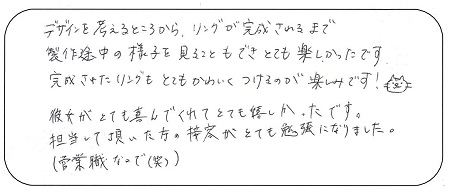 デザインを考えるところから、リングが完成されるまで
製作途中の様子を見ることもできとても楽しかったです
完成されたリングもとてもかわいくつけるのが楽しみです!
彼女がとても喜んでくれてとても嬉しかったです。
担当して頂いた方の接客がとても勉強になりました。
(営業職なので(笑))